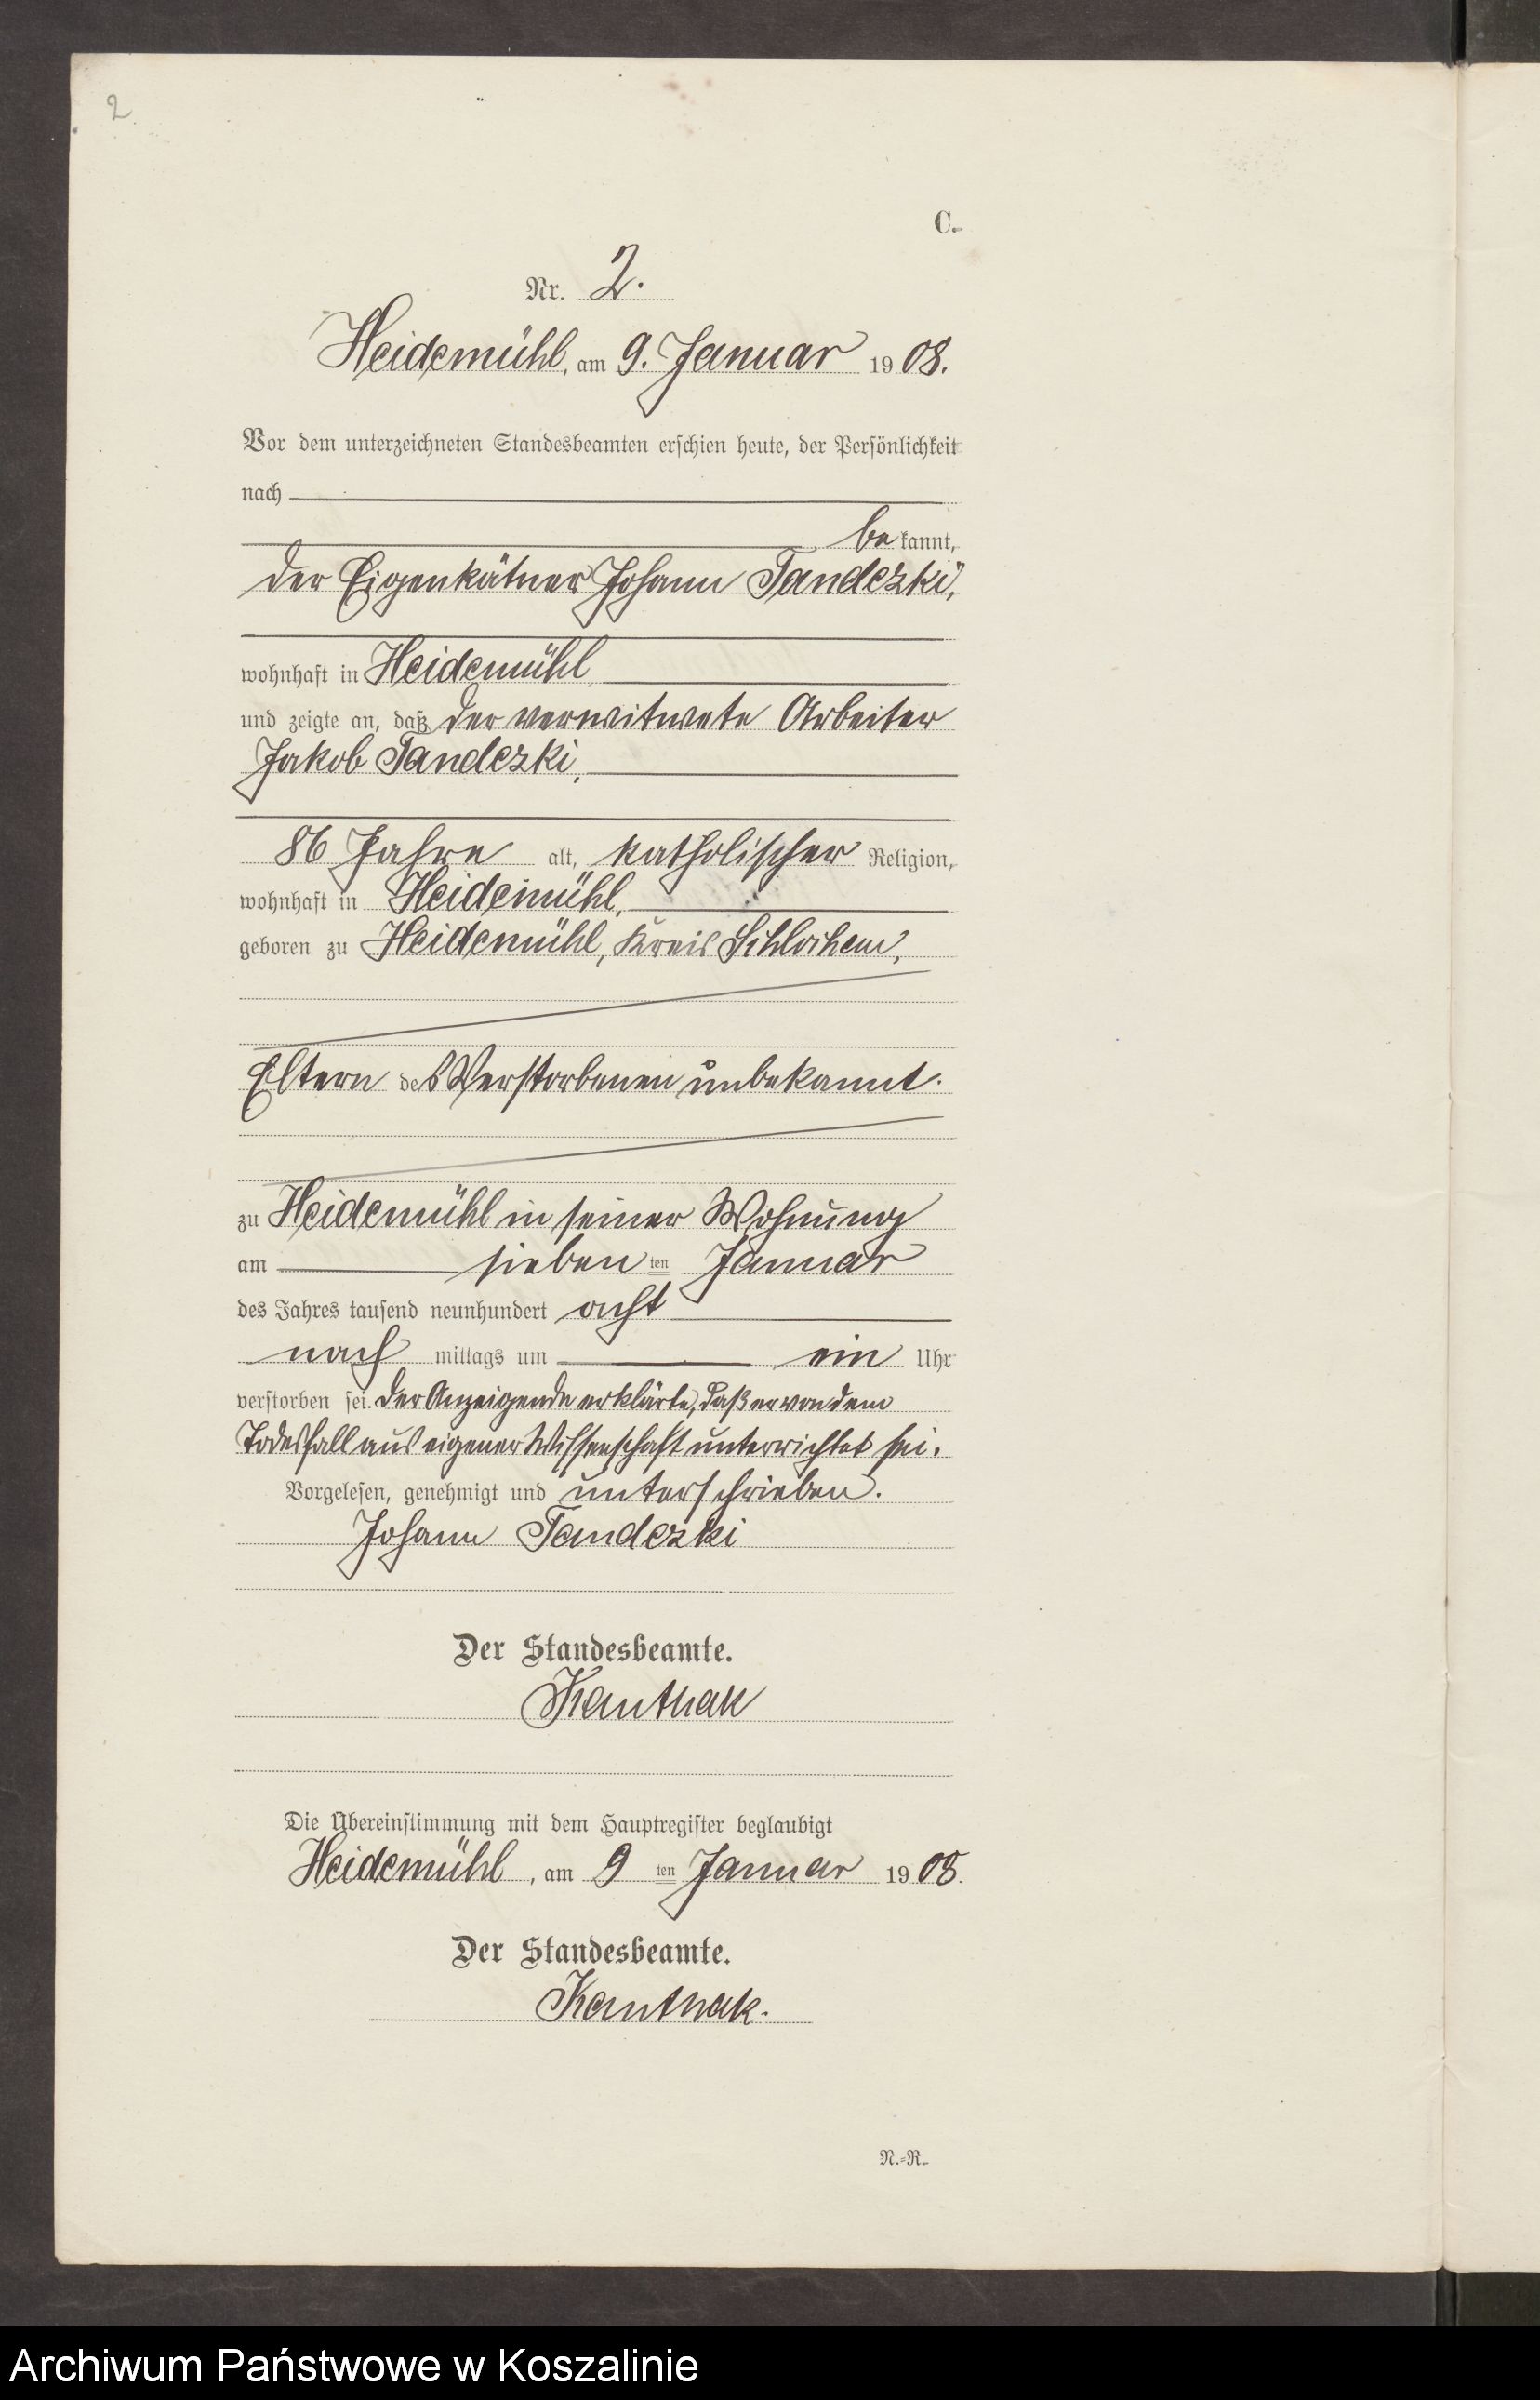 2
C.
Nr. 2.
Heidemühl, am 9. Januar 1908.
Vor dem unterzeichneten Standesbeamten erschien heute, der Persönlichkeit
nach
bekannt,
der Eigenkätner Johann Tandezki,
wohnhaft in Heidemühl
und zeigte an, daß der verwitwete Arbeiter
Jakob Tandezki,
86 Jahre alt, katholischer Religion,
wohnhaft in Heidemühl,
geboren zu Heidemühl, Kreis Schlochau,
Eltern des Verstorbenen unbekannt.
zu Heidemühl in seiner Wohnung
am sieben ten Januar
des Jahres tausend neunhundert acht
nach mittags um ein Uhr
verstorben sei. Der Anzeigende erklärte, daß er von dem
Todesfall aus eigener Wissenschaft unterrichtet sei.
Vorgelesen, genehmigt und unterschrieben.
Johann Tandezki
Der Standesbeamte.
Kanthak
Die Übereinstimmung mit dem Hauptregister beglaubigt
Heidemühl, am 9 ten Januar 1908.
Der Standesbeamte.
Kanthak.
N.=R.
Archiwum Państwowe w Koszalinie